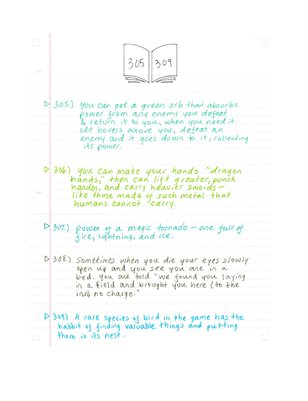 305 309
305.) You can get a green orb that absorbs
power from any enemy you defeat
& return it to you, when you need it
it hovers above you, defeat an
enemy and it goes down to it, collecting
its power.
306.) You can make your hands "dragon
hands," then can lift greater, punch
harder, and carry heavier swords—
like those made of such metal that
humans cannot carry.
307.) Power of a magic tornado — one full of
fire, lightning, and ice.
308.) Sometimes when you die your eyes slowly
open up and you see you are in a
bed. You are told "we found you laying
in a field and brought you here (to the
inn) no charge."
309.) A rare species of bird in the game has the
habbit of finding valuable things and putting
them in its nest.